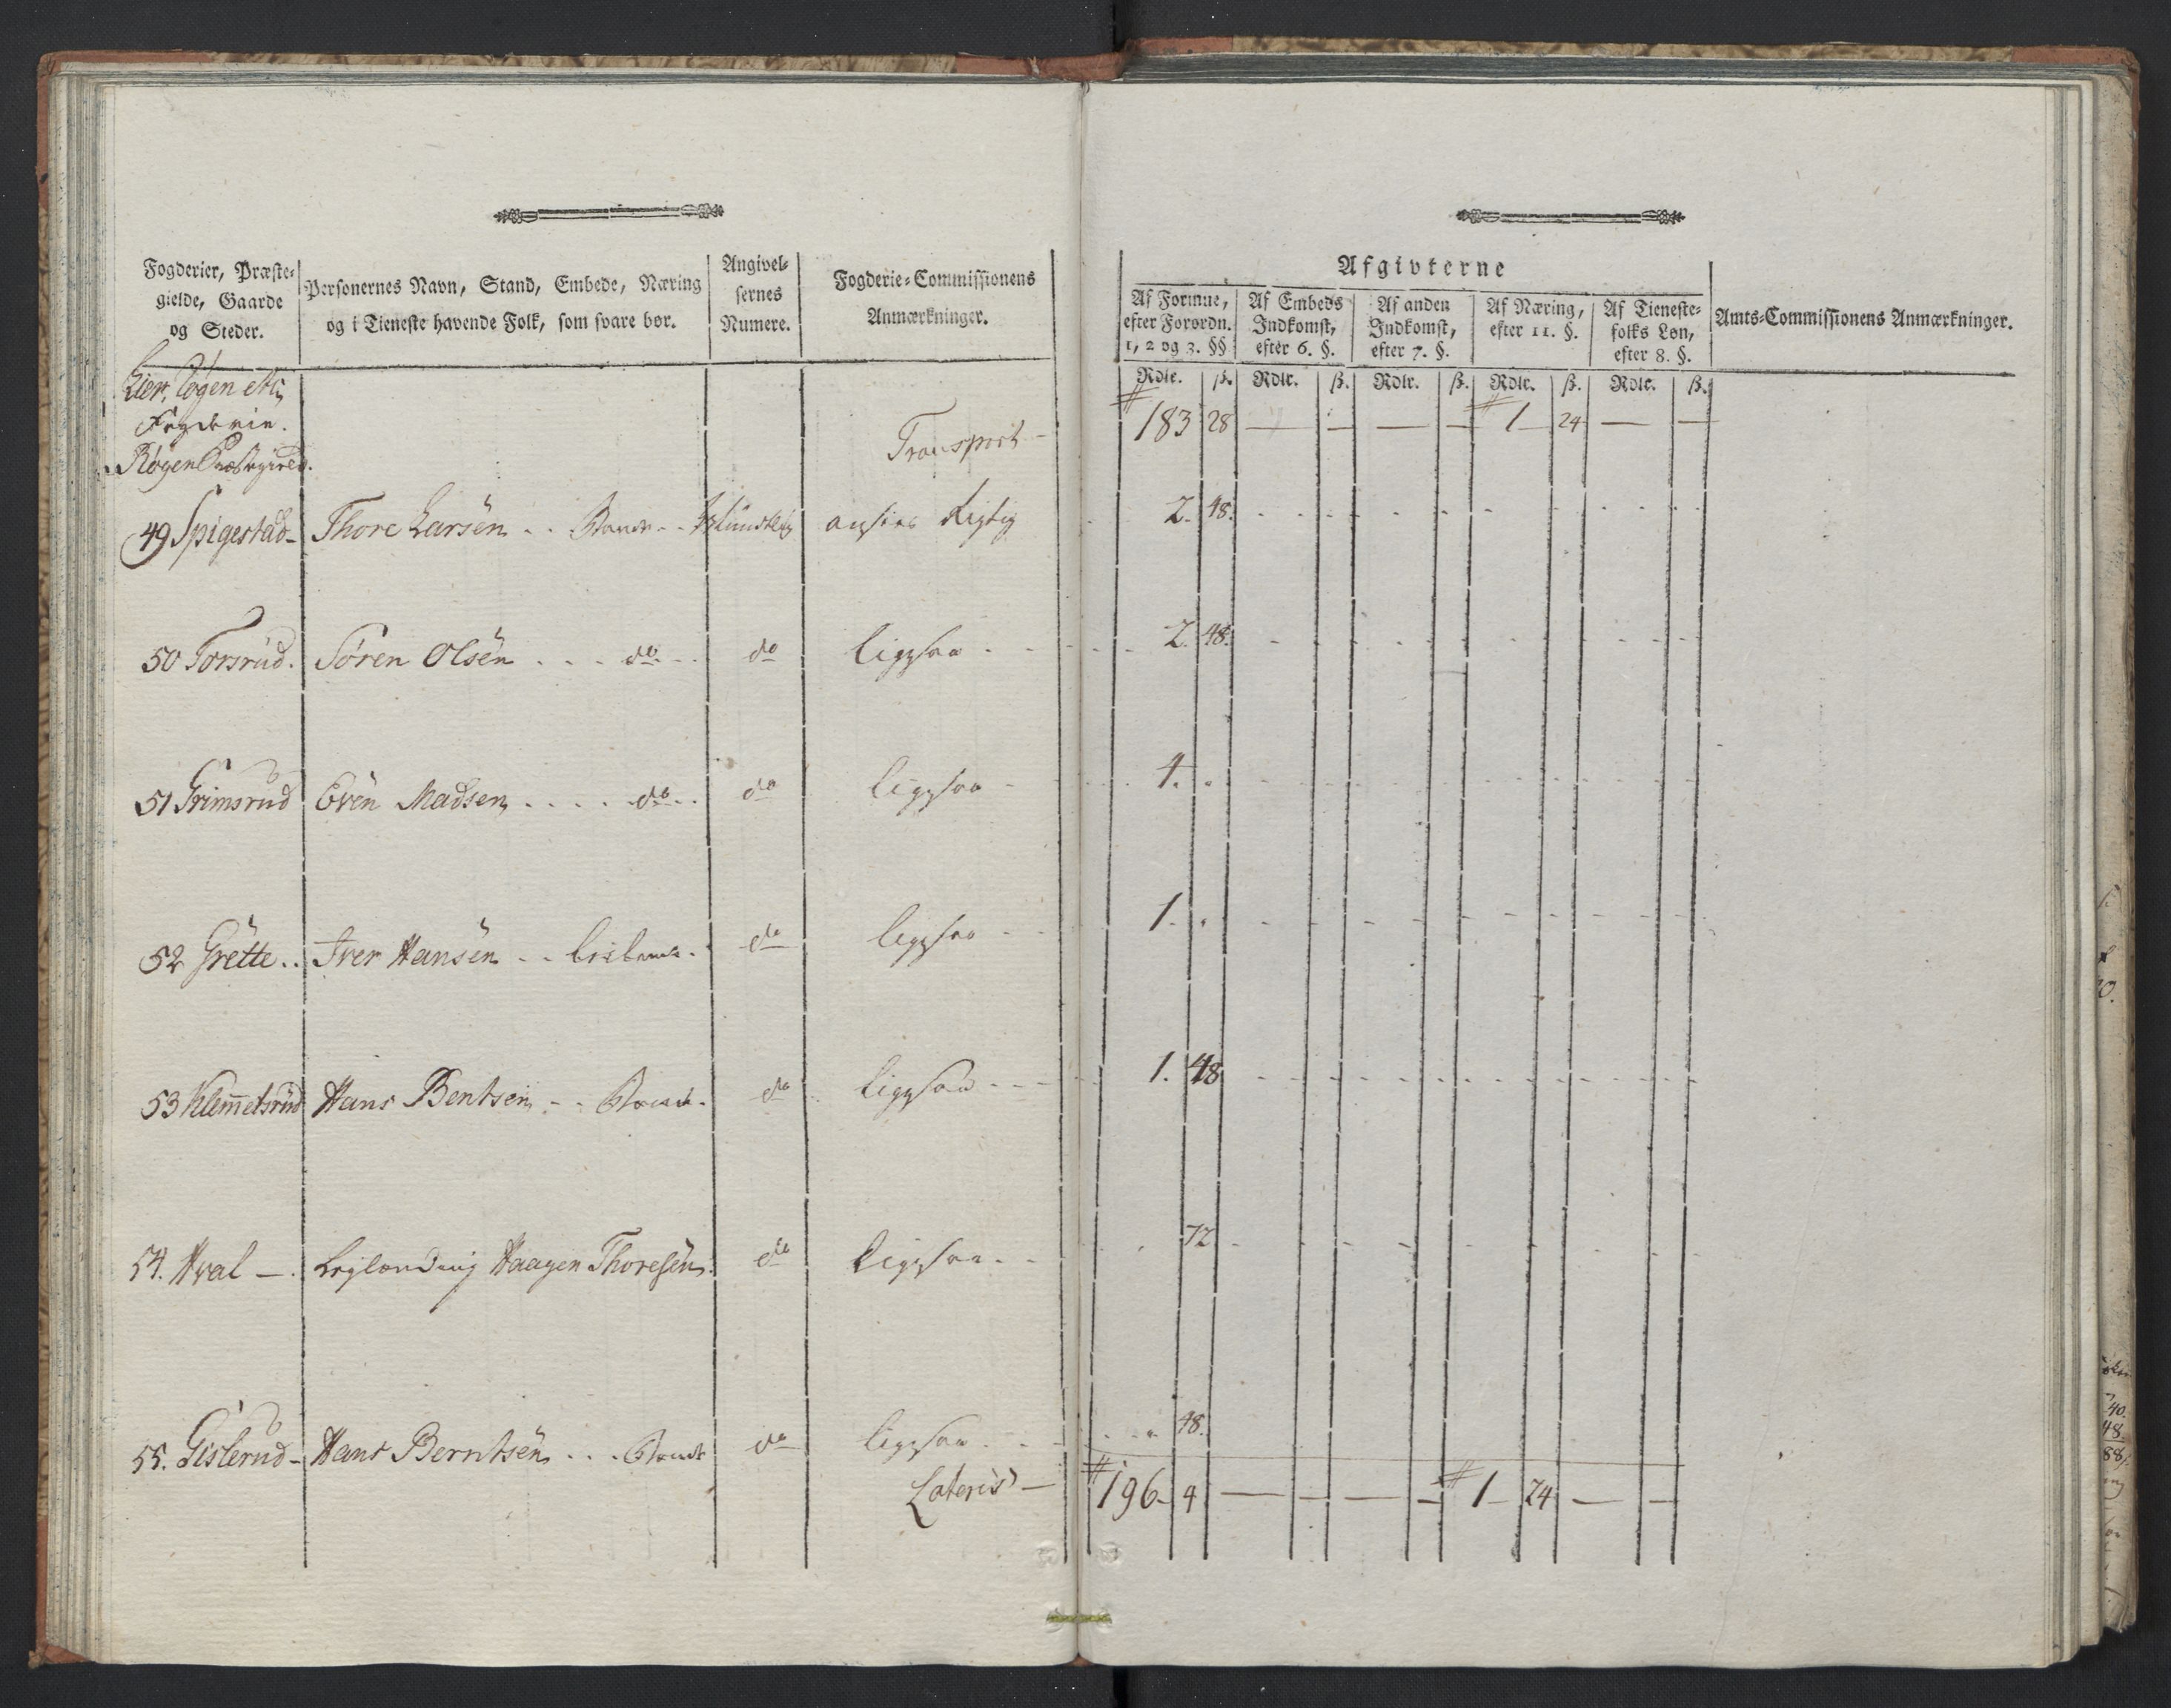 Fogderier, Præste-
gielde, Gaarde
og Steder.
Personernes Navn, Stand, Embede, Næring
og i Tieneste havende Folk, som svare bør.
Angivel-
sernes
Numere.
Fogderie-Commissionens
Anmærkninger.
Afgivterne
Af Formue,
efter Forordn.
1, 2 og 3. §§
Af Embeds
Indkomst,
efter 6. §.
Af anden
Indkomst,
efter 7. §.
Af Næring,
efter 11. §.
Af Tieneste-
folks Løn,
efter 8. §.
Amts-Commissionens Anmærkninger.
Rdlr. ß. Rdlr. ß. Rdlr. ß. Rdlr. ß. Rdlr. ß.
Lier, Røgen etc
Fogderie.
Røgen Præstegield.
Transport - 183 28 — — — — 1 24 — —
49 Spigestad - Thore Larsen . . Bonde - - Mündtlig ansees Rigtig 2. 48.
50 Torsrud. Søren Olsen . . . do - - do ligesaa - 2. 48.
51 Grimsrud Even Madsen . . . . do . . do ligesaa - 4. "
52 Grette . . Iver Hansen - - do ligesaa - - 1. "
53 Klemmetsrud Hans Bentsen - - Bonde. do ligesaa - - - 1. 48
54. Hval —. Leylænding Haagen Thoresen. do ligesaa - - 72
55. Gislerud - Hans Berntsen . . . Bonde do ligesaa - - " 48.
Lateris — 196 - 4 — — — — 1 - 24 — —